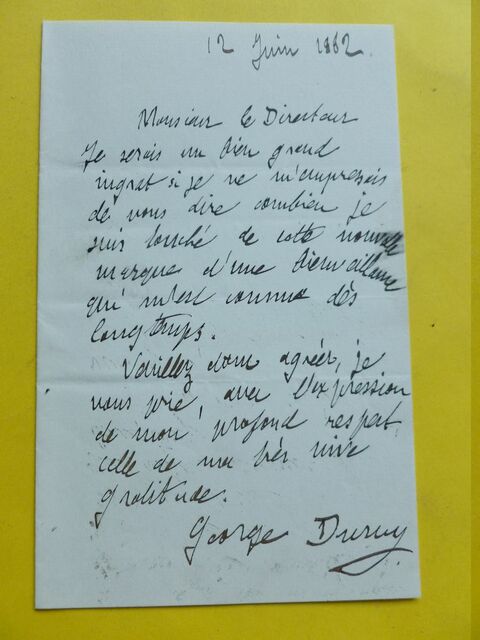 12 Juin 1882.
Monsieur le Directeur
Je serais un bien grand
ingrat si je ne m'empressais
de vous dire combien je
suis touché de cette nouvelle
marque d'une bienveillance
qui m'est connue dès
longtemps.
Veuillez donc agréer, je
vous prie, avec l'expression
de mon profond respect,
celle de ma très vive
gratitude.
George Duruy